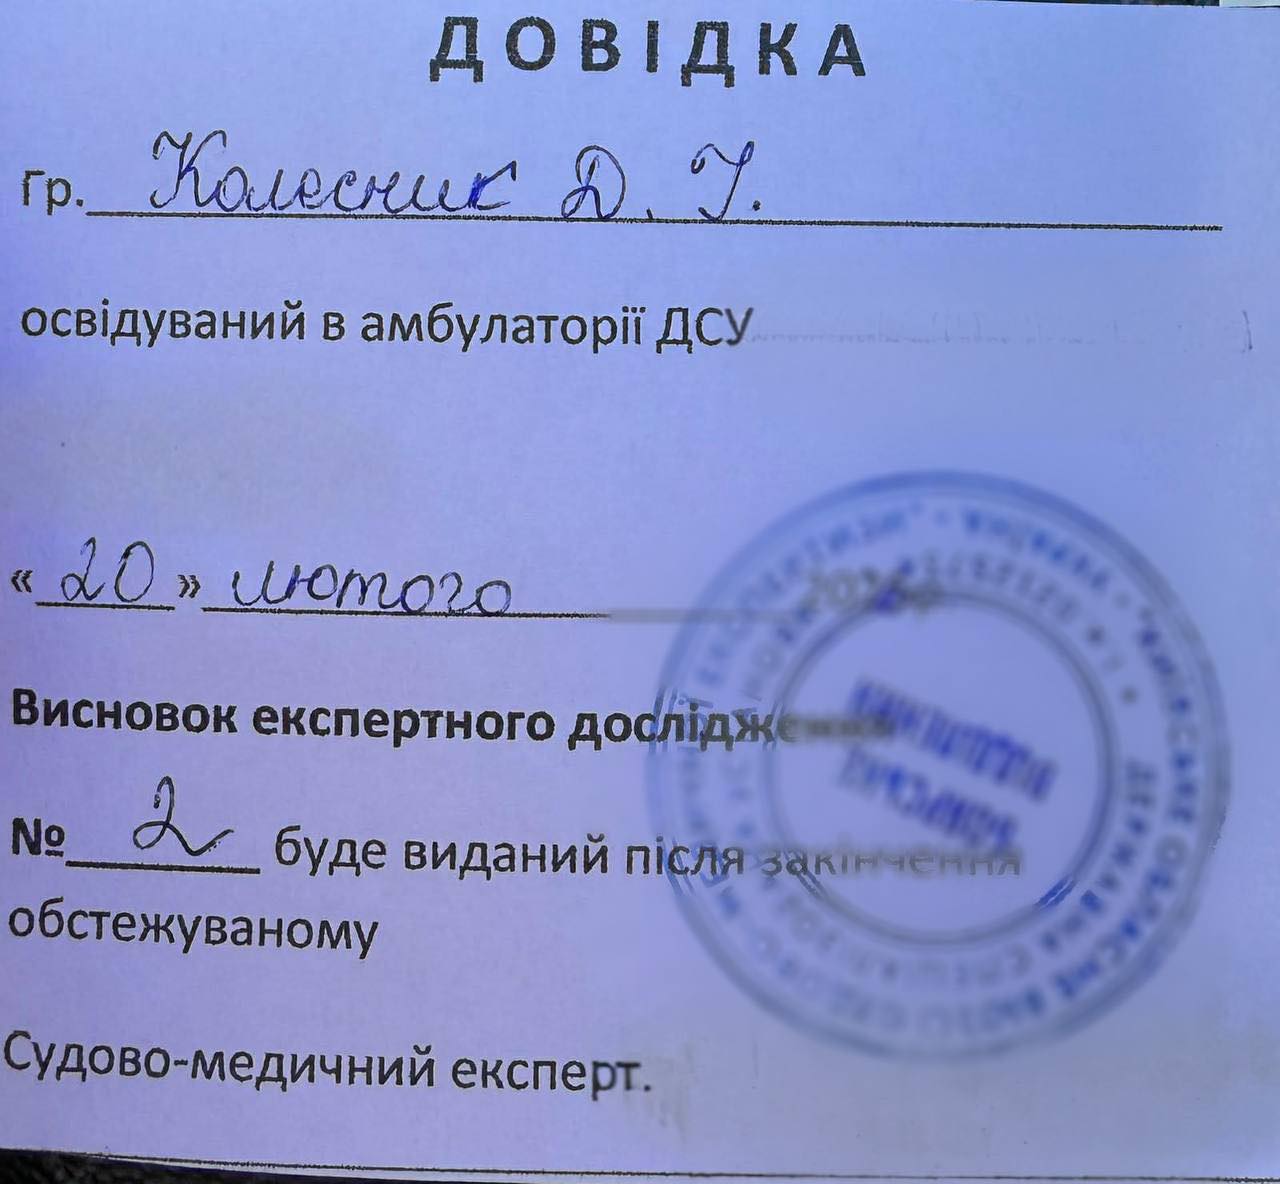 ДОВІДКА
Гр. Колесник Д. І.
освідуваний в амбулаторії ДСУ
« 20 » лютого
Висновок експертного дослідження
№ 2 буде виданий після закінчення
обстежуваному
Судово-медичний експерт.